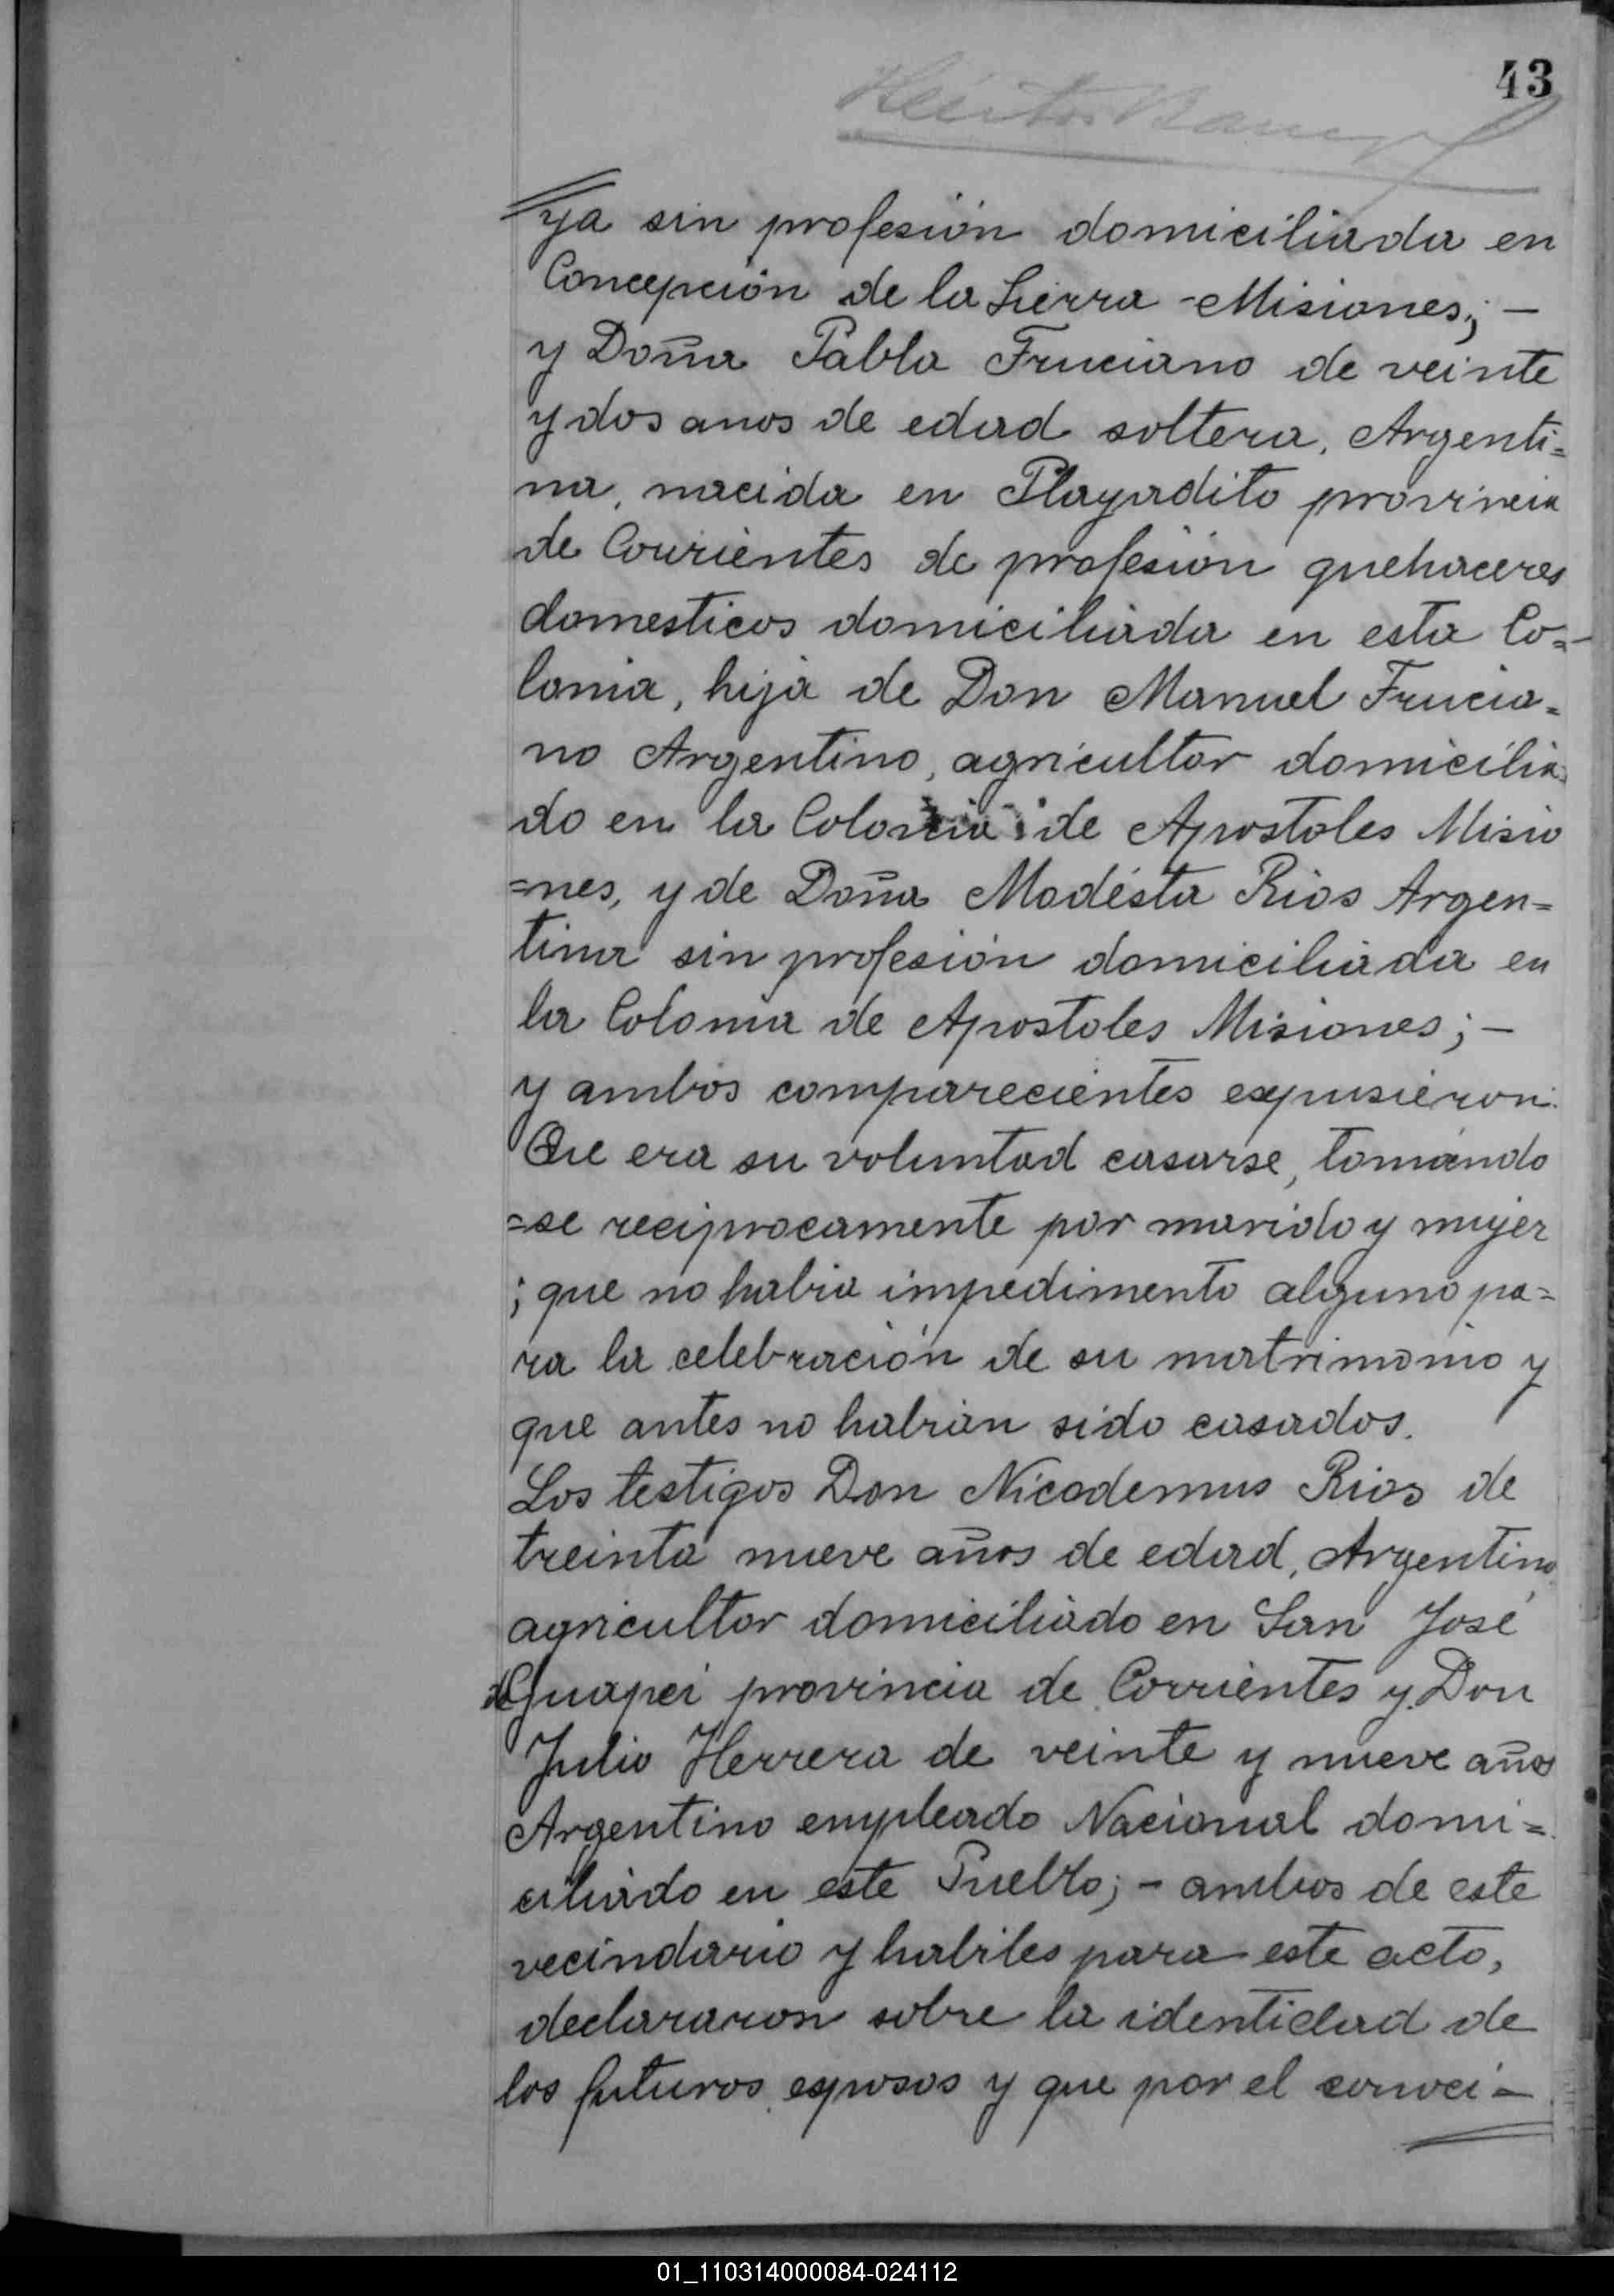 43
ya sin profesión domiciliada en
Concepción de la Sierra - Misiones; —
y Doña Pabla Fruciano de veinte
y dos anos de edad soltera, Argenti=
na, nacida en Playadito provincia
de Corrientes de profesión quehaceres
domesticos domiciliada en esta Co=
lonia, hija de Don Manuel Frucia=
no Argentino, agricultor domicilia=
do en la Colonia de Apostoles Misio
=nes, y de Doña Modésta Rios Argen=
tina sin profesión domiciliada en
la Colonia de Apostoles Misiones; —
y ambos comparecientes expusieron:
Que era su voluntad casarse, tomándo
=se reciprocamente por marido y mujer
; que no habia impedimento alguno pa=
ra la celebración de su matrimonio y
que antes no habian sido casados.
Los testigos Don Nicodemus Rios de
treinta nueve años de edad, Argentino
agricultor domiciliado en San José
Guapei provincia de Corrientes y Don
Julio Herrera de veinte y nueve años
Argentino empleado Nacional domi=
ciliado en este Pueblo; - ambos de este
vecindario y habiles para este acto,
declararon sobre la identidad de
los futuros esposos y que por el conoci=
01_110314000084-024112